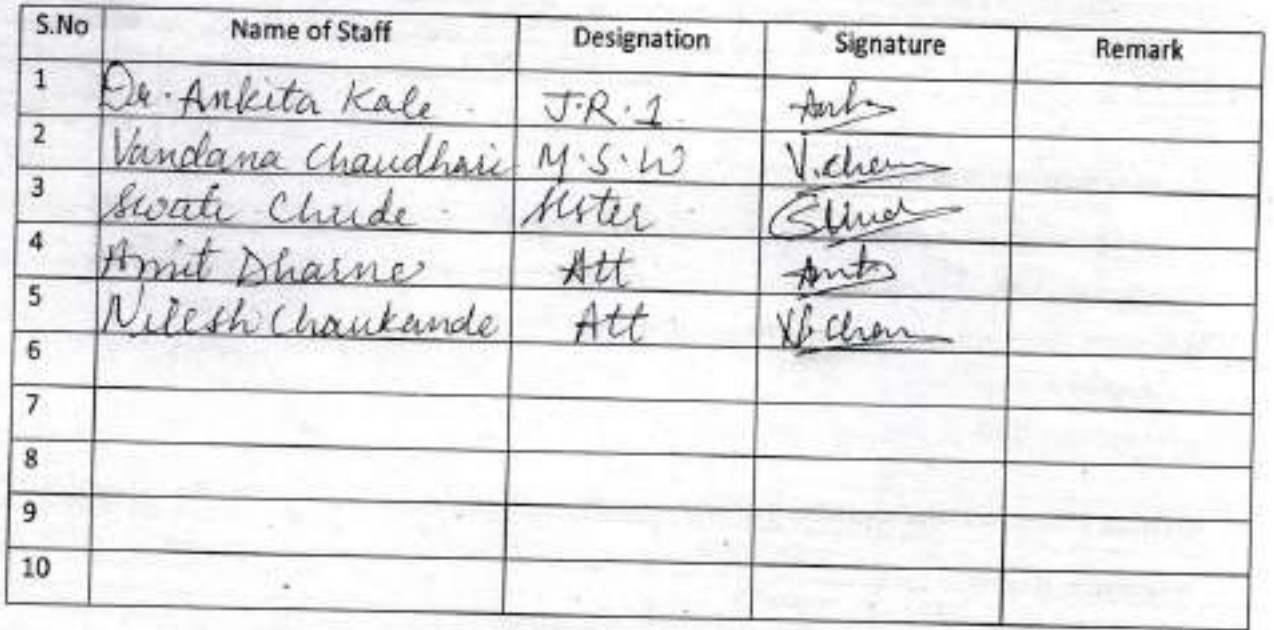 S.No Name of Staff Designation Signature Remark
1 Dr. Ankita Kale J.R.1
2 Vandana Chaudhari M.S.W V.chau
3 Swati Chude Sister
4 Amit Dharne Att
5 Nilesh Chaukande Att
6
7
8
9
10